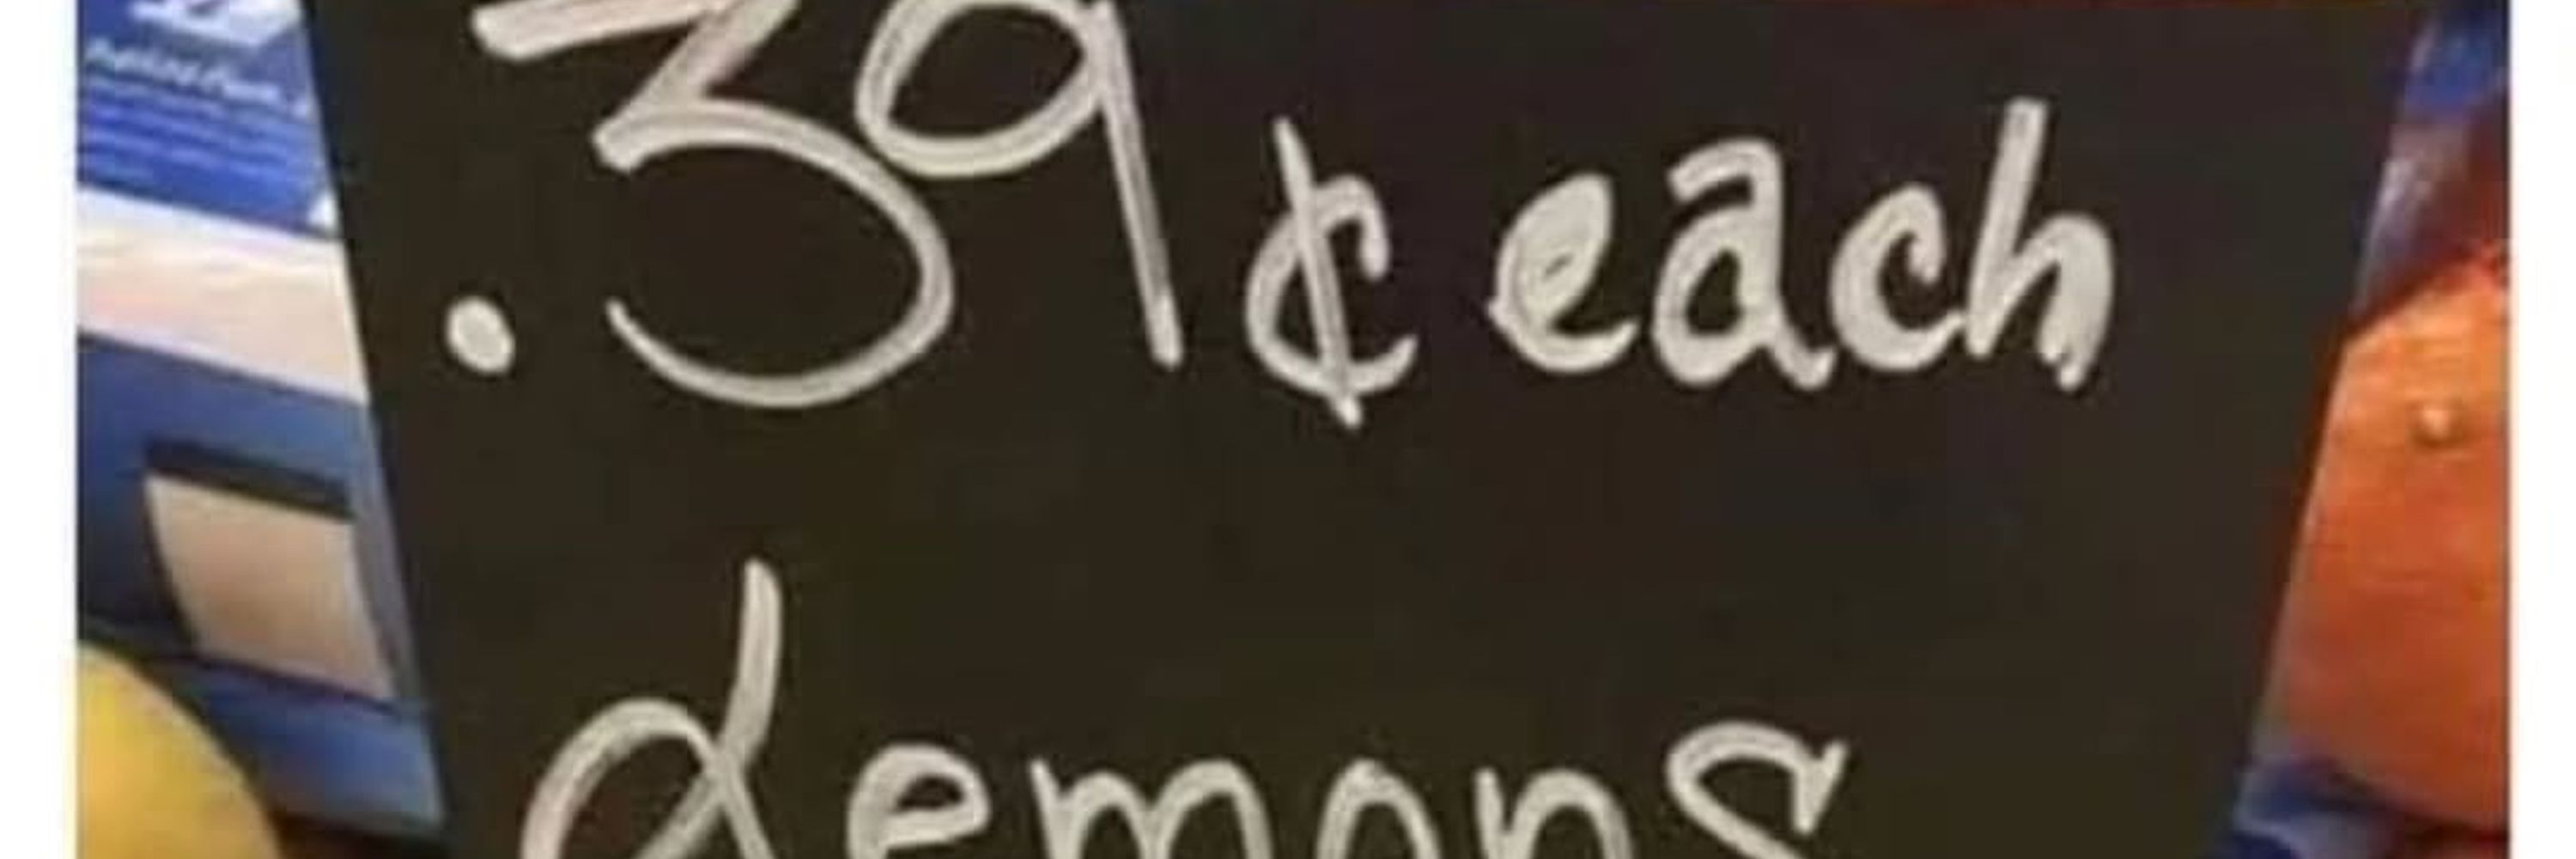 .39¢ each
demons